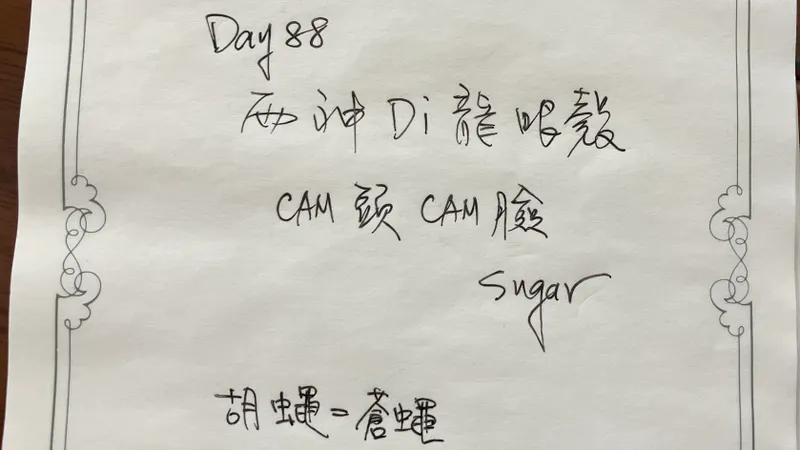 Day 88
雨神 Di 龍眼殼
CAM 頭 CAM 臉
Sugar
胡蠅 = 蒼蠅